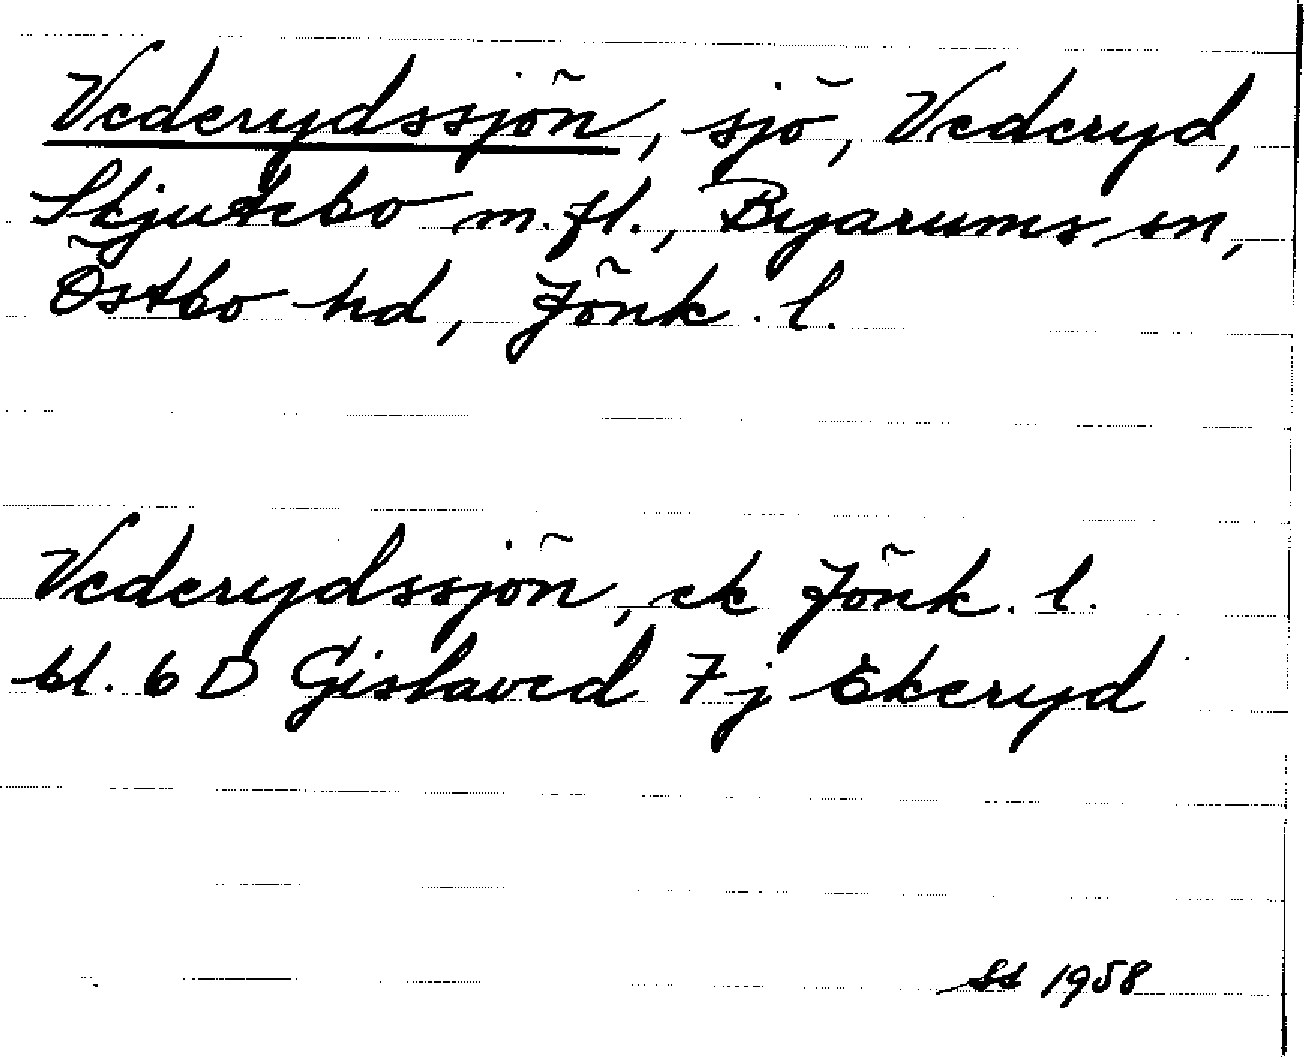 Vederydssjön, sjö, Vederyd,
Skjutebo m.fl., Byarums sn,
Östbo hd, Jönk. l.
Vederydssjön, ek Jönk. l.
bl. 6 D Gislaved 7 j Ekeryd
SS 1958